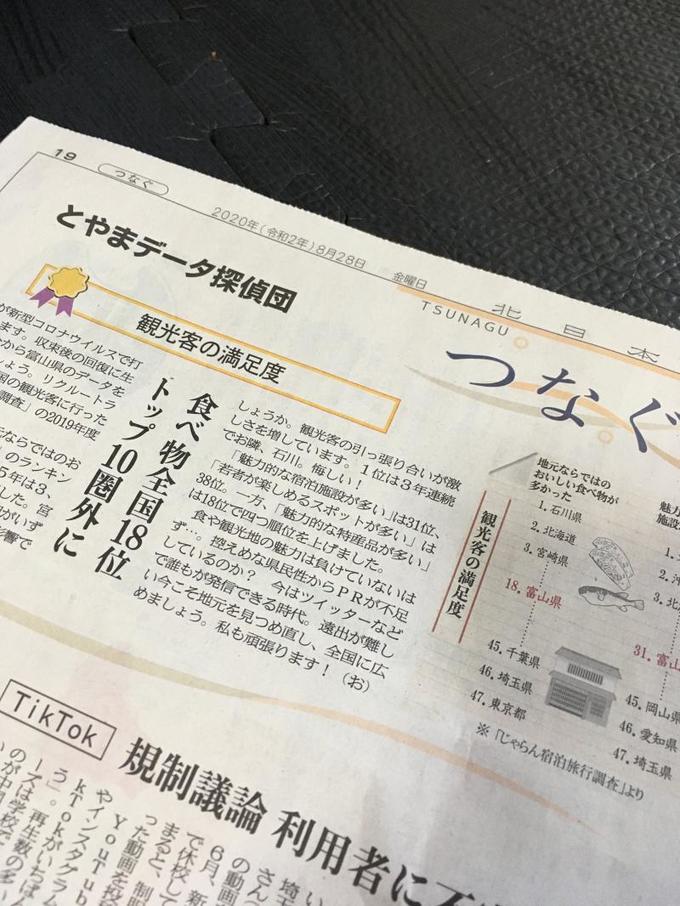 19
つなぐ
2020年(令和2年)8月28日
金曜日
北日本
とやまデータ探偵団
観光客の満足度
が新型コロナウイルスで打
ます。収束後の回復に生
から富山県のデータを
しょう。リクルートラ
国の観光客に行った
調査」の2019年度
元ならではのお
のランキン
5年は3、
した。富
がいず
影響で
食べ物全国18位
トップ10圏外に
しょうか。観光客の引っ張り合いが激
しさを増しています。1位は3年連続
でお隣、石川。悔しい！
「魅力的な宿泊施設が多い」は31位、
「若者が楽しめるスポットが多い」は
38位。一方、「魅力的な特産品が多い」
は18位で四つ順位を上げました。
食や観光地の魅力は負けていないは
ず…。控えめな県民性からPRが不足
しているのか？　今はツイッターなど
で誰もが発信できる時代。遠出が難し
い今こそ地元を見つめ直し、全国に広
めましょう。私も頑張ります！（お）
TSUNAGU
つなぐ
観光客の満足度
地元ならではの
おいしい食べ物が
多かった
1. 石川県
2. 北海道
3. 宮崎県
18. 富山県
45. 千葉県
46. 埼玉県
47. 東京都
魅力
施設
1.
2. 沖
3. 北
31. 富山
45. 岡山県
46. 愛知県
47. 埼玉県
※「じゃらん宿泊旅行調査」より
TikTok
規制議論 利用者に不
埼玉
さん
の動画
6月、新
で休校して
まると、
った動画
YouTub
やインスタグラム
kTokがいちばん
う」。
ーズは、再生数の